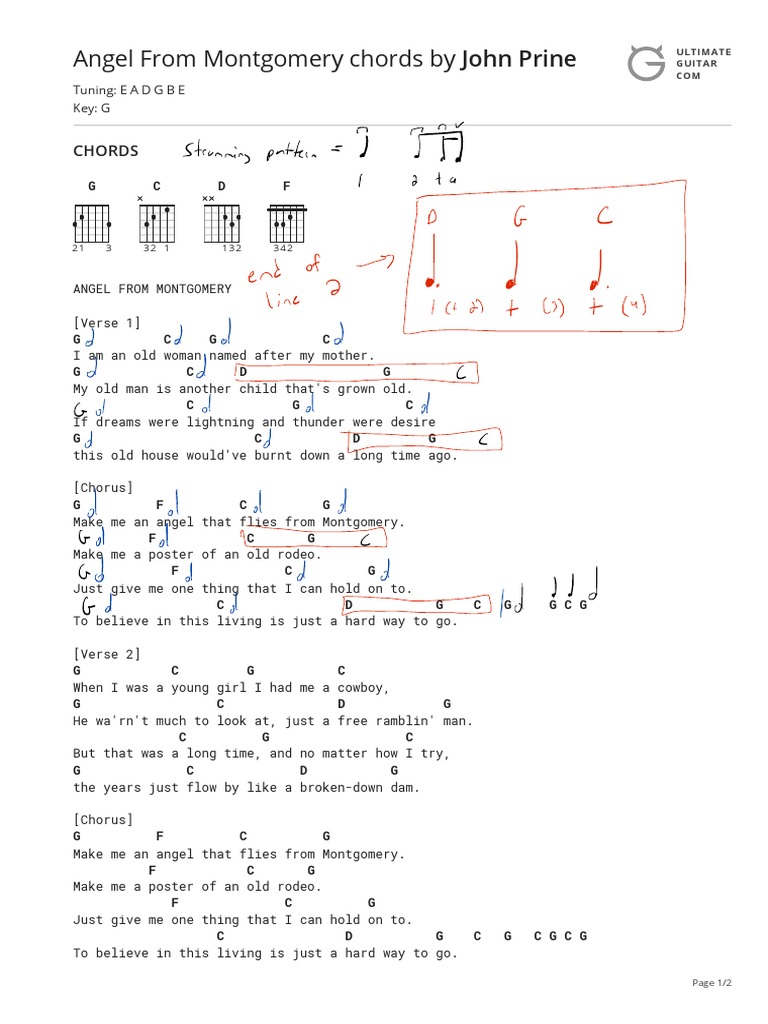 Angel From Montgomery chords by John Prine
ULTIMATE
GUITAR
COM
Tuning: E A D G B E
Key: G
CHORDS
Strumming pattern =
1 2 + a
G C D F
x xx
21 3 32 1 132 342
D G C
1 (+ 2) + (3) + (4)
end of
line 2
ANGEL FROM MONTGOMERY
[Verse 1]
G C G C
I am an old woman named after my mother.
G C D G C
My old man is another child that's grown old.
G C G C
If dreams were lightning and thunder were desire
G C D G C
this old house would've burnt down a long time ago.
[Chorus]
G F C G
Make me an angel that flies from Montgomery.
G F C G C
Make me a poster of an old rodeo.
G F C G
Just give me one thing that I can hold on to.
G C D G C G G C G
To believe in this living is just a hard way to go.
[Verse 2]
G C G C
When I was a young girl I had me a cowboy,
G C D G
He wa'rn't much to look at, just a free ramblin' man.
C G C
But that was a long time, and no matter how I try,
G C D G
the years just flow by like a broken-down dam.
[Chorus]
G F C G
Make me an angel that flies from Montgomery.
F C G
Make me a poster of an old rodeo.
F C G
Just give me one thing that I can hold on to.
C D G C G C G C G
To believe in this living is just a hard way to go.
Page 1/2